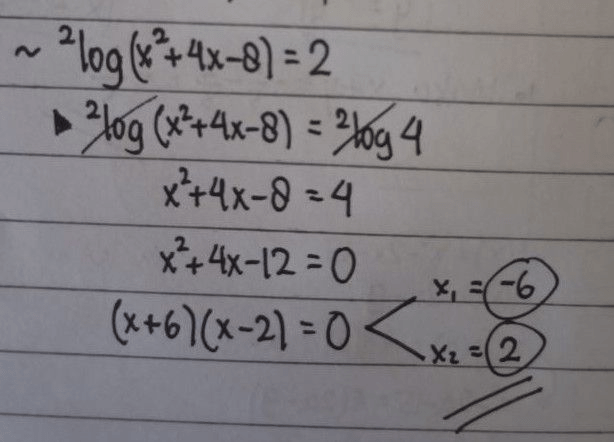 ~ ²log(x²+4x-8) = 2
▶ ²log(x²+4x-8) = ²log 4
x²+4x-8 = 4
x²+4x-12 = 0
(x+6)(x-2) = 0 < x₁ = -6
x₂ = 2